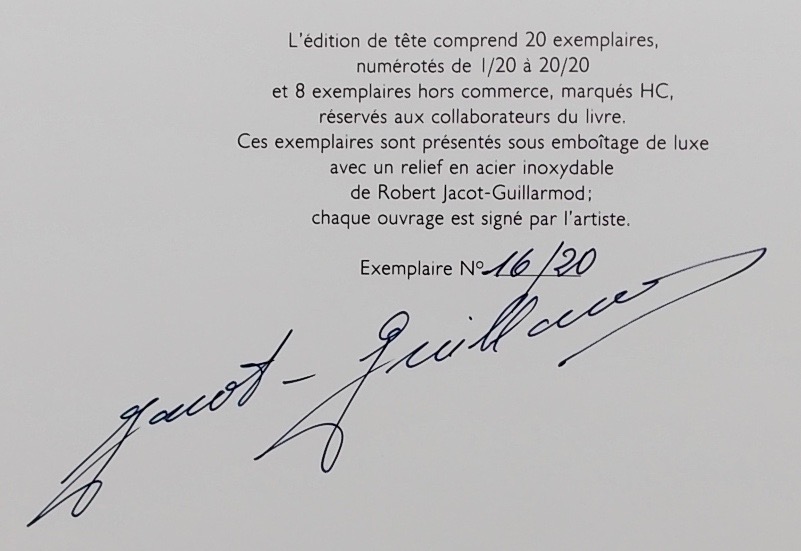 L'édition de tête comprend 20 exemplaires,
numérotés de 1/20 à 20/20
et 8 exemplaires hors commerce, marqués HC,
réservés aux collaborateurs du livre.
Ces exemplaires sont présentés sous emboîtage de luxe
avec un relief en acier inoxydable
de Robert Jacot-Guillarmod;
chaque ouvrage est signé par l'artiste.
Exemplaire Nº 16/20
Jacot-